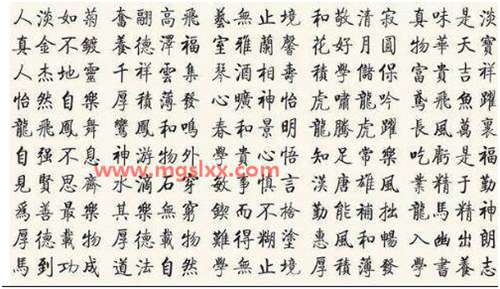 人淡如菊 奮翩高飛 藝無止境 和敬清寂 真味是淡
真金不鍍 養德澤福 室雅蘭馨 花好月圓 物華天寶
人杰地靈 千祥雲集 琴酒相壽 積學儲保 富貴吉祥
怡然自樂 厚積薄發 心曠神怡 虎嘯龍吟 鳶飛魚躍
龍飛鳳舞 鸞鳳和鳴 春和景明 龍騰虎躍 長風萬裏
自强不息 神游物外 學貴心悟 知足常樂 吃虧是福
www.mgslxx.com
見賢思齊 水滴石穿 敏事慎言 漢唐雄風 業精于勤
爲善最樂 其樂無窮 鍥而不捨 勤能補拙 龍馬精神
厚德載物 厚德載物 難得糊塗 惠風和暢 入幽出朗
馬到功成 道法自然 學無止境 厚積薄發 學書養志